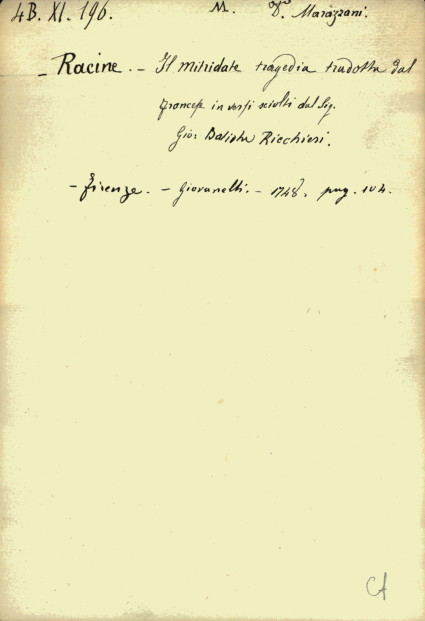 4B. XI. 196. M. F.do Marazzani.
_ Racine. - Il Mitridate tragedia tradotta dal
francese in versi sciolti dal Sig.
Gio: Batista Ricchieri.
- Firenze. - Giovanelli. - 1748. pag. 104.
CA